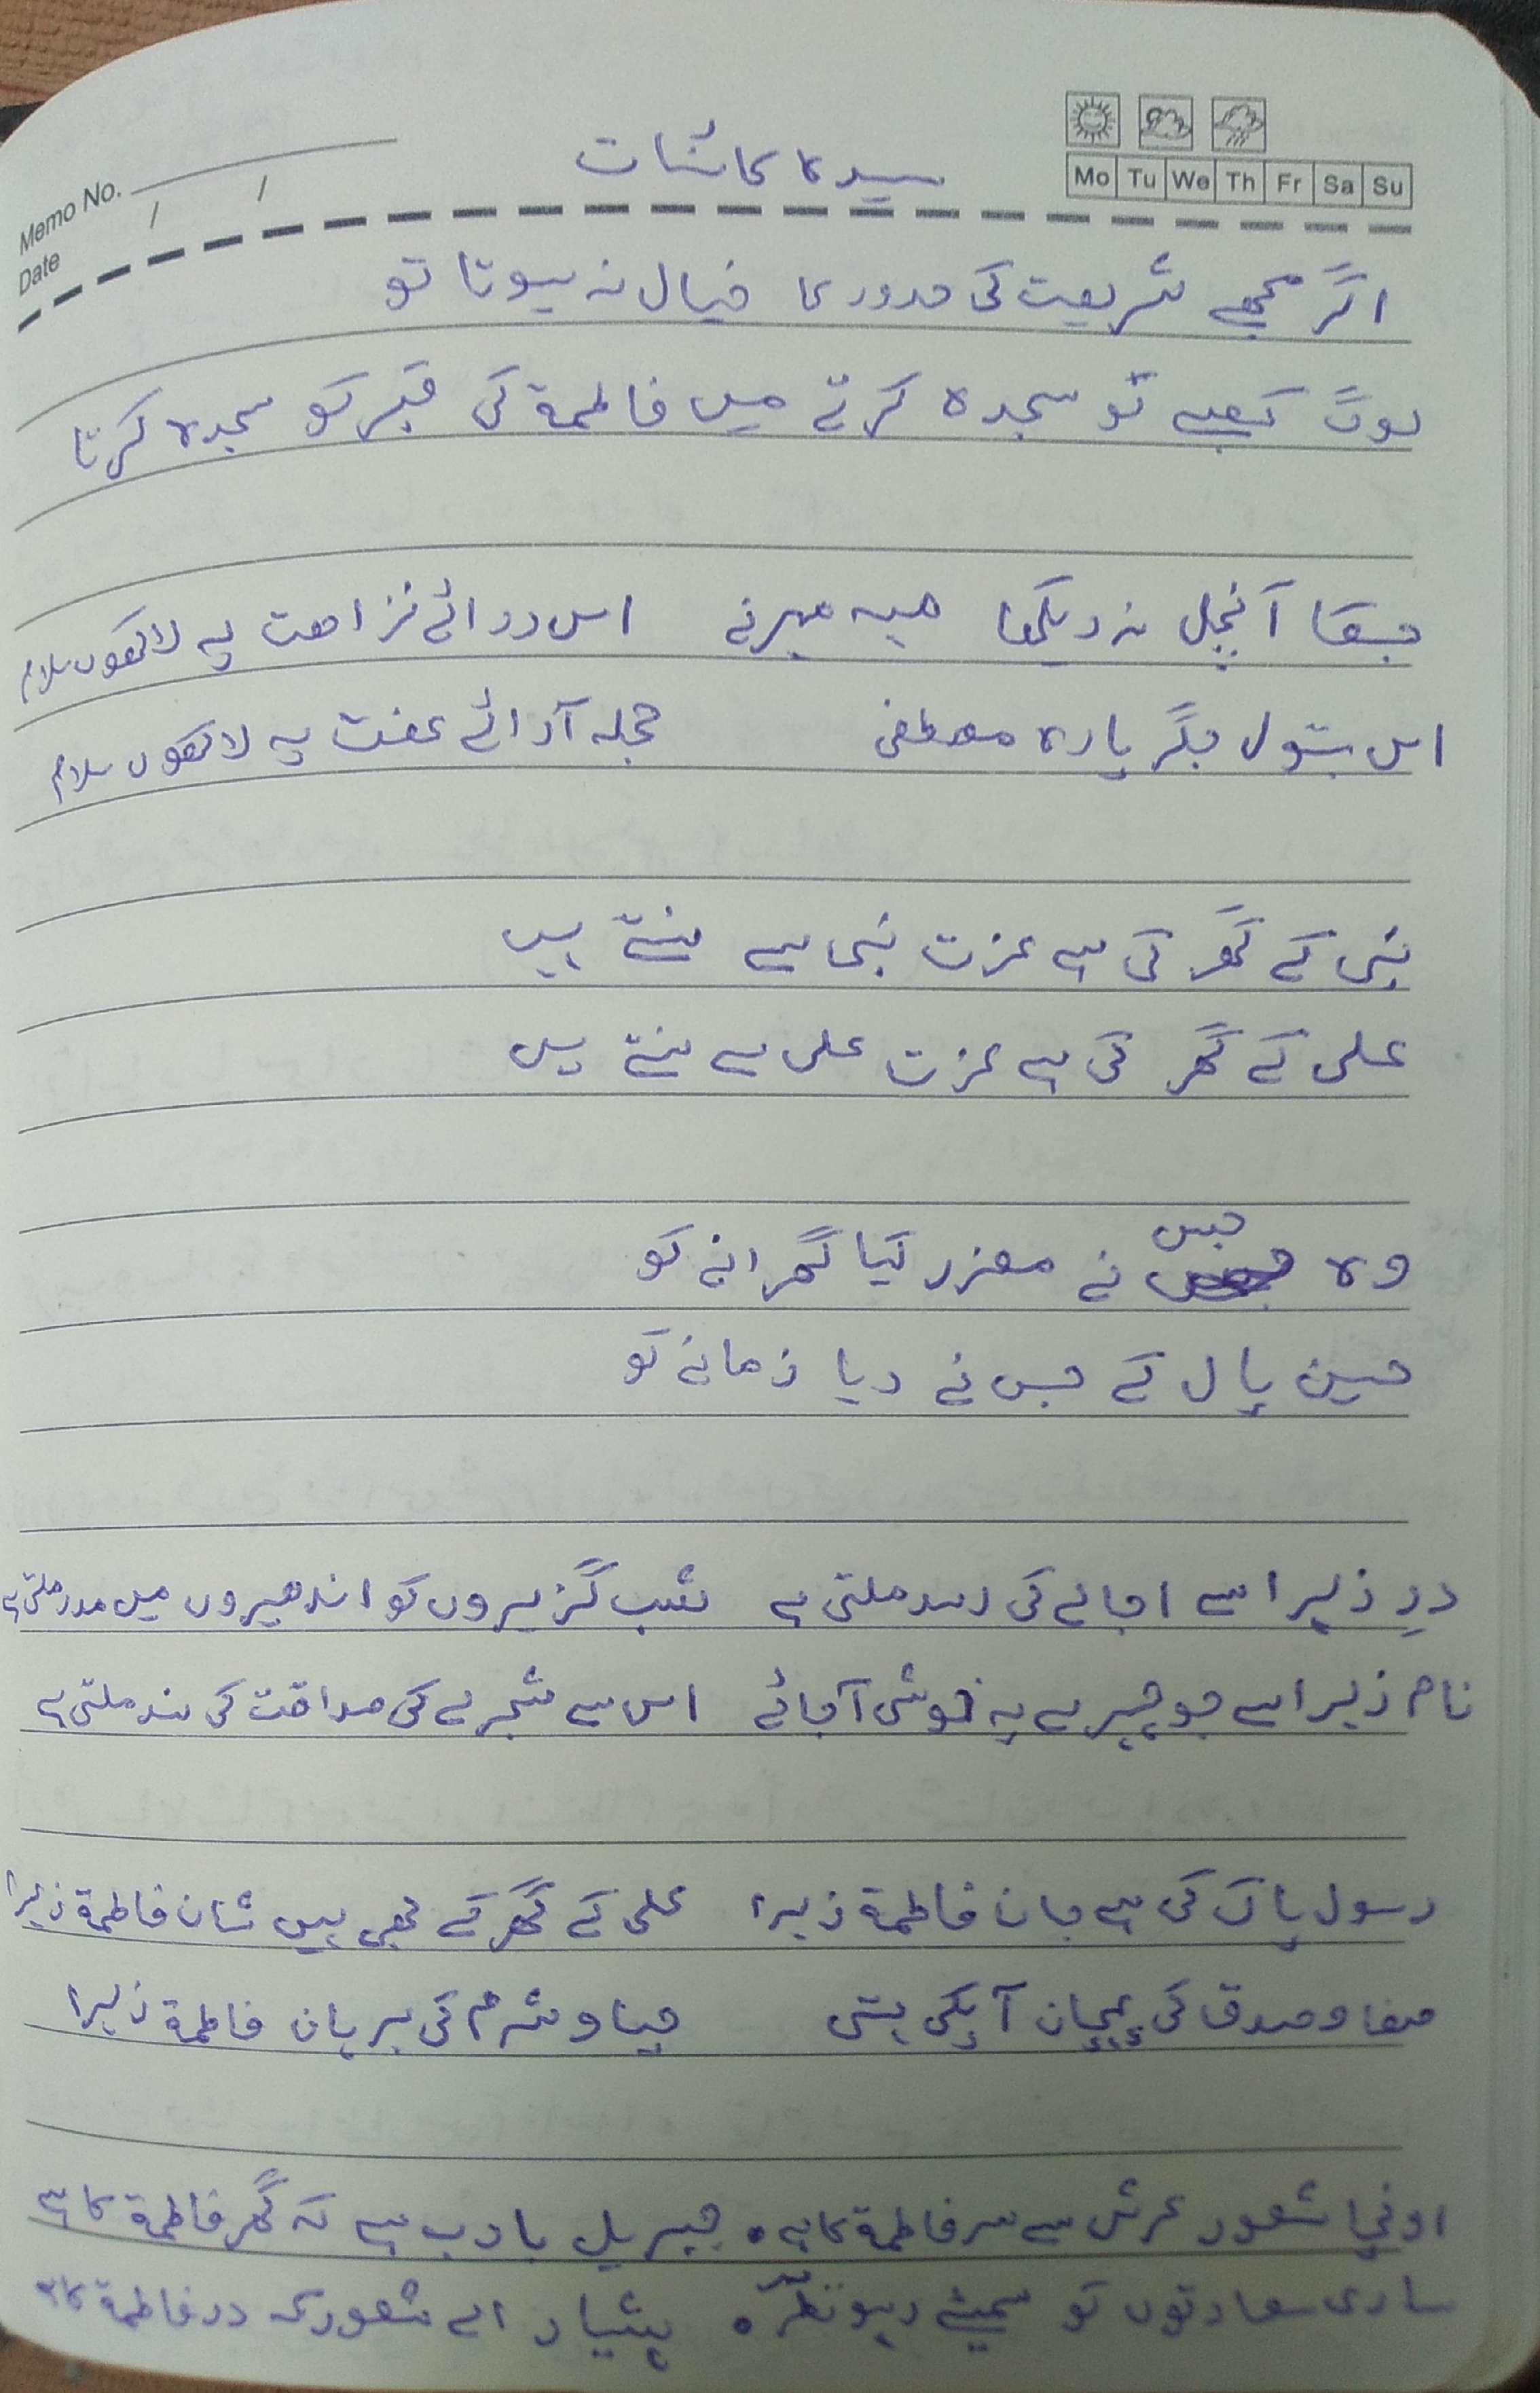 Memo No.
Date / /
Mo Tu We Th Fr Sa Su
سیدہ کائنات
اگر مجھے شریعت کی حدود کا خیال نہ ہوتا تو
لوگ کعبے کو سجدہ کرتے میں فاطمة کی قبر کو سجدہ کرتا
جسکا آنچل نہ دیکھا مہ مہر نے اس ردائے نزاھت پہ لاکھوں سلام
اس بتول جگر پارہ مصطفی حجلہ آرائے عفت پہ لاکھوں سلام
نبی کے گھر کی ہے عزت نبی سے سنتے ہیں
علی کے گھر کی ہے عزت علی سے سنتے ہیں
وہ جس نے معزز کیا گھرانے کو
حسین پال کے جس نے دیا زمانے کو
درِ زہرا سے اجالے کی رسد ملتی ہے شب گزیروں کو اندھیروں میں مدد ملتی ہے
نام زہرا سے جو چہرے پہ خوشی آجائے اس سے شجرے کی صداقت کی سند ملتی ہے
رسول پاک کی ہے جان فاطمة زہرا علی کے گھر کے بھی ہیں شان فاطمة زہرا
صفا و صدق کی پہچان آپکی ہستی حیا و شرم کی برہان فاطمة زہرا
اونچا شعور عرش سے سر فاطمة کا ہے ۰ جبریل با ادب ہے کہ گھر فاطمة کا ہے
ساری سعادتوں کو سمیٹے رہو ۰ ہشیار اے شعور کہ در فاطمة کا ہے